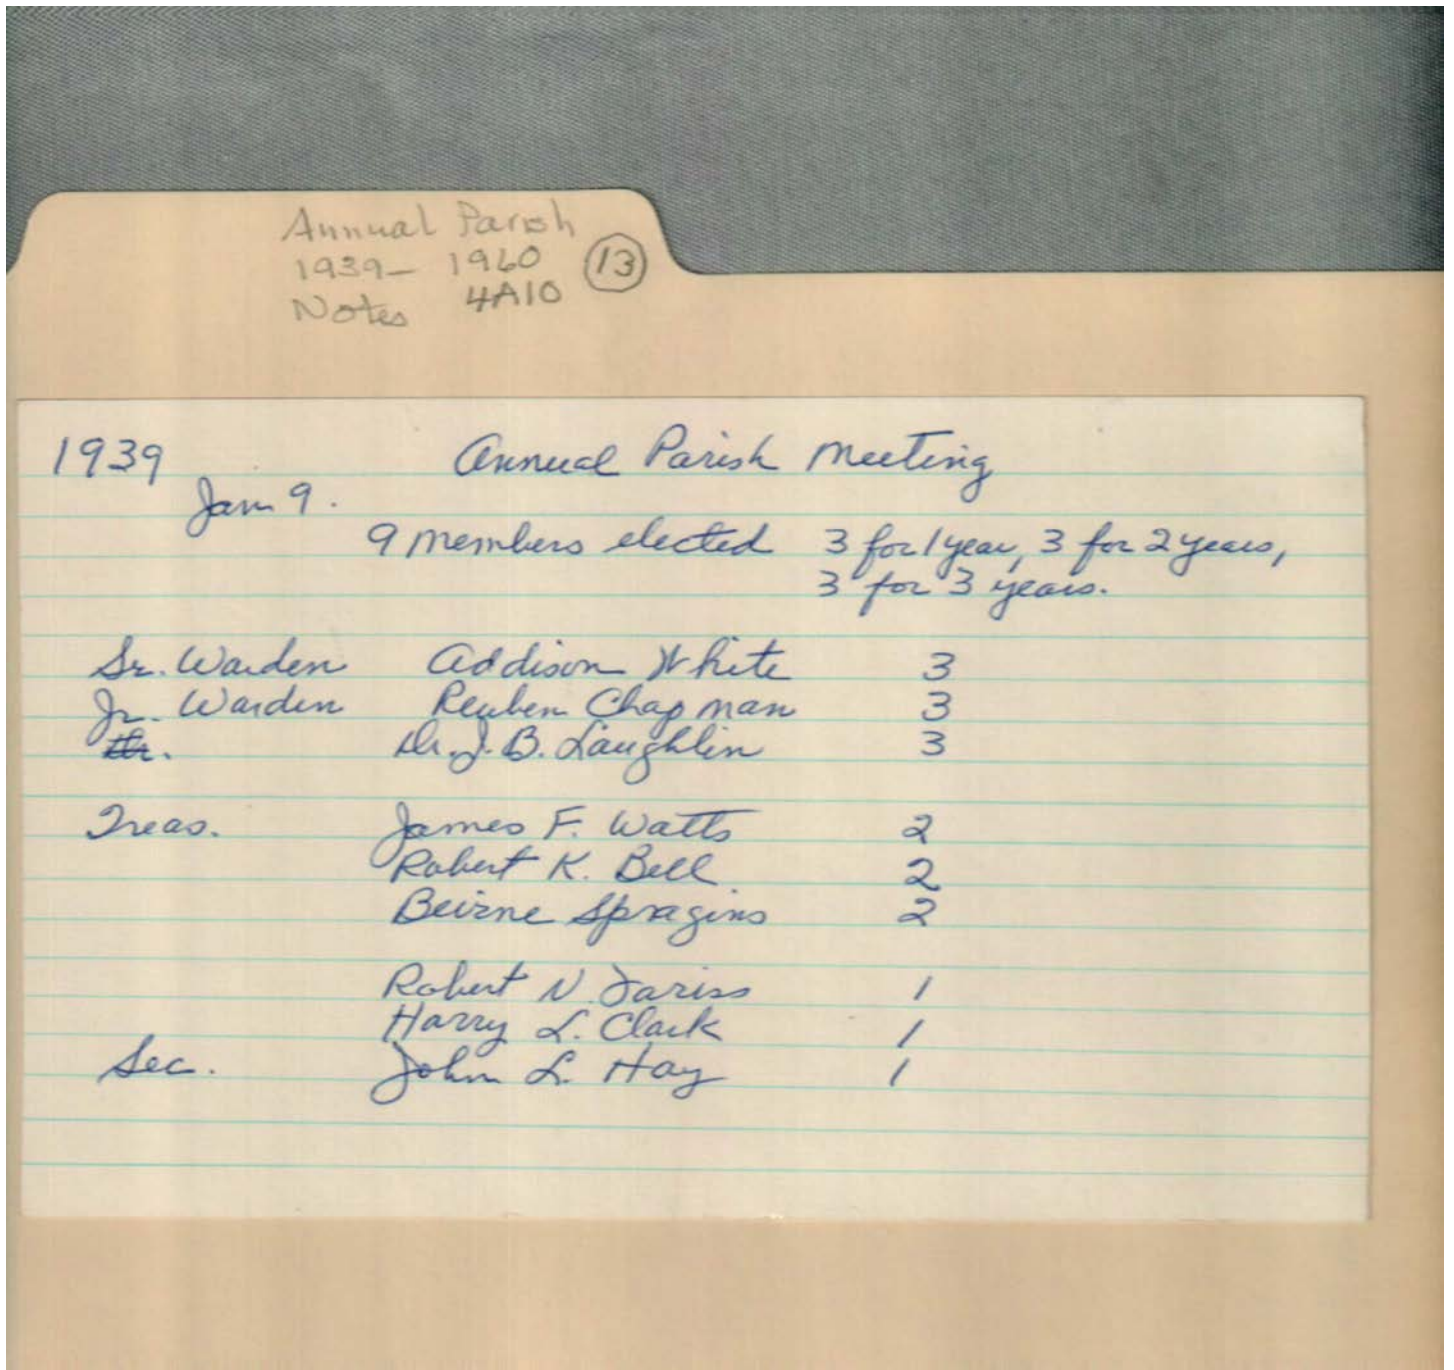 Annual Parish
1939- 1960 13
Notes 4A10
1939 Annual Parish Meeting
Jan 9.
9 members elected 3 for 1 year, 3 for 2 years,
3 for 3 years.
Sr. Warden Addison White 3
Jr. Warden Reuben Chapman 3
Dr. J. B. Laughlin 3
Treas. James F. Watts 2
Robert K. Bell 2
Beirne Spragins 2
Robert N. Fariss 1
Harry L. Clark 1
Sec. John L. Hay 1